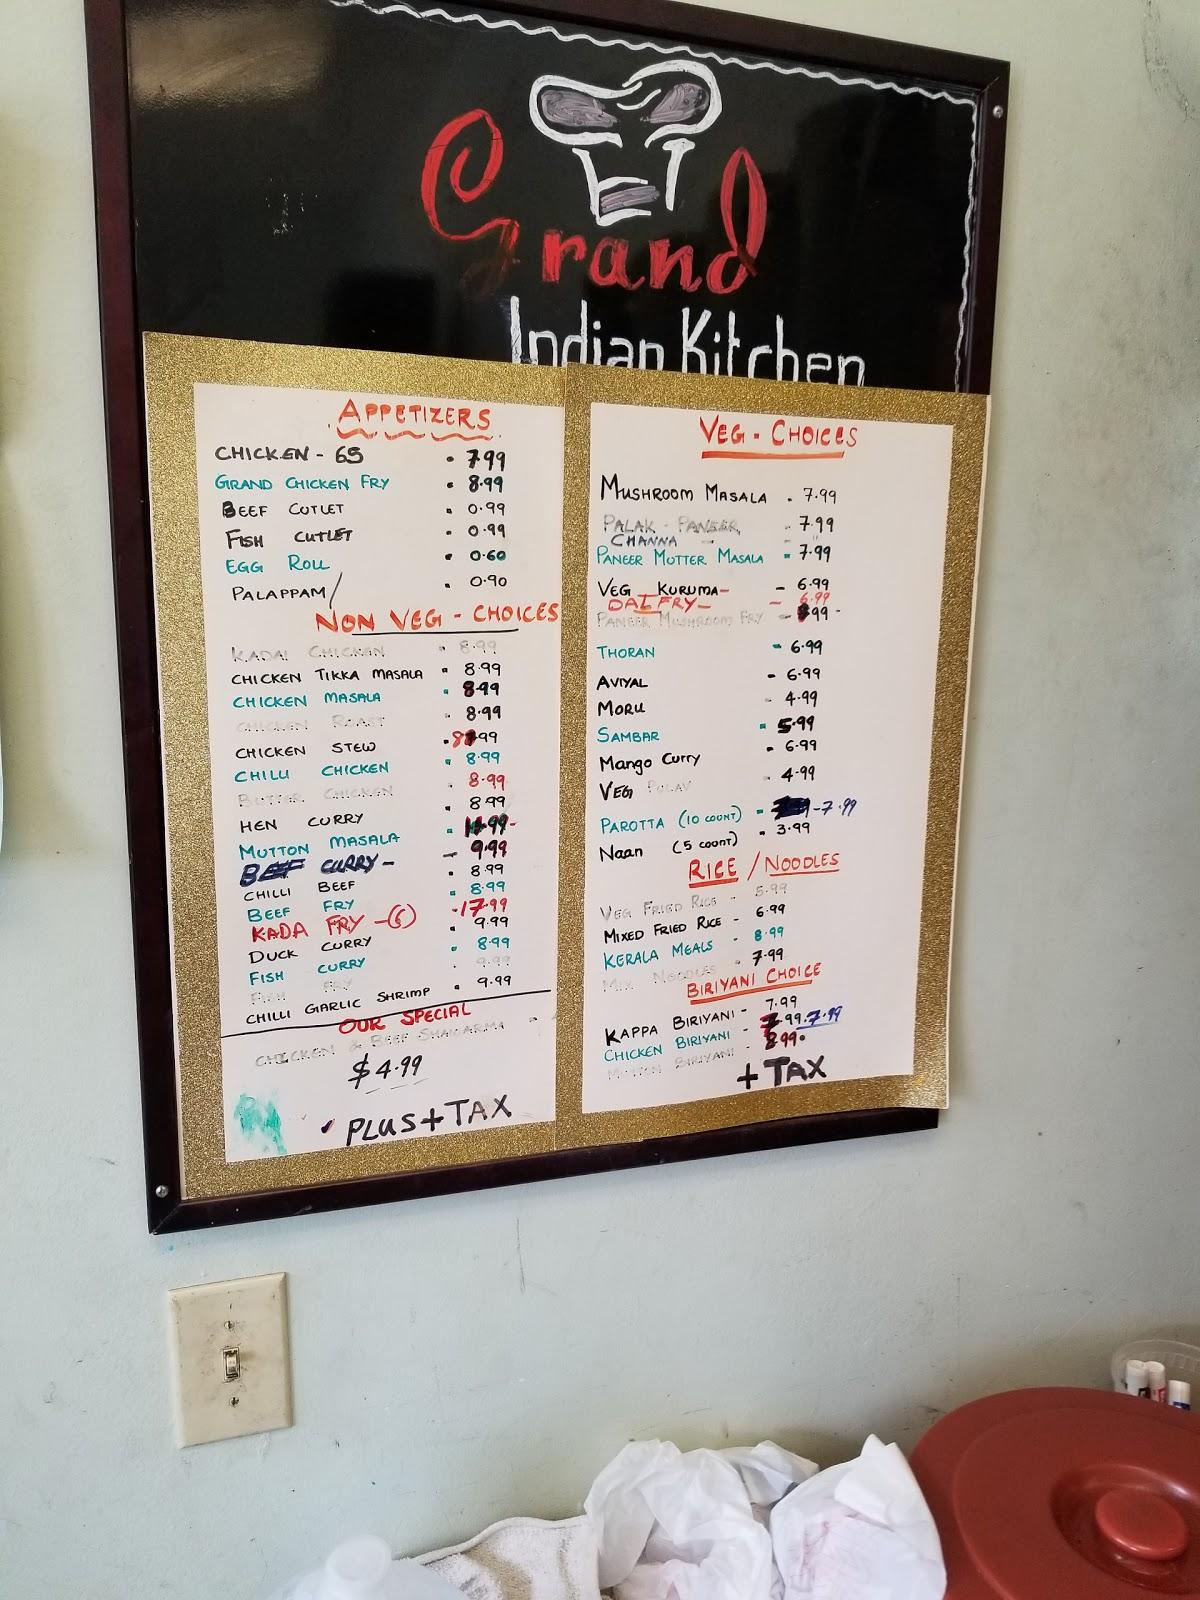 Grand
Indian Kitchen
APPETIZERS
CHICKEN - 65 • 7.99
GRAND CHICKEN FRY • 8.99
BEEF CUTLET • 0.99
FISH CUTLET • 0.99
EGG ROLL • 0.60
PALAPPAM / • 0.90
NON VEG - CHOICES
KADAI CHICKEN • 8.99
CHICKEN TIKKA MASALA • 8.99
CHICKEN MASALA • 8.99
CHICKEN ROAST • 8.99
CHICKEN STEW • 8.99
CHILLI CHICKEN • 8.99
BUTTER CHICKEN • 8.99
HEN CURRY • 8.99
MUTTON MASALA • 11.99-
BEEF CURRY - - 9.99
CHILLI BEEF • 8.99
BEEF FRY • 8.99
KADA FRY -(6) -17.99
DUCK CURRY • 9.99
FISH CURRY • 8.99
FISH FRY • 9.99
CHILLI GARLIC SHRIMP • 9.99
OUR SPECIAL
CHICKEN & BEEF SHAWARMA -
$4.99
• PLUS+TAX
VEG - CHOICES
MUSHROOM MASALA • 7.99
PALAK - PANEER - 7.99
CHANNA -
PANEER MUTTER MASALA - 7.99
VEG KURUMA- - 6.99
DAL FRY- - 6.99
PANEER MUSHROOM FRY - 99 -
THORAN - 6.99
AVIYAL - 6.99
MORU - 4.99
SAMBAR - 5.99
Mango Curry • 6.99
VEG PULAV - 4.99
PAROTTA (10 COUNT) - -7.99
Naan (5 COUNT) • 3.99
RICE / NOODLES
VEG FRIED RICE - 5.99
MIXED FRIED RICE - 6.99
KERALA MEALS - 8.99
MIX NOODLES - 7.99
BIRIYANI CHOICE
KAPPA BIRIYANI - 7.99
CHICKEN BIRIYANI - 7.99.7.99
MUTTON BIRIYANI - 8.99•
+ TAX